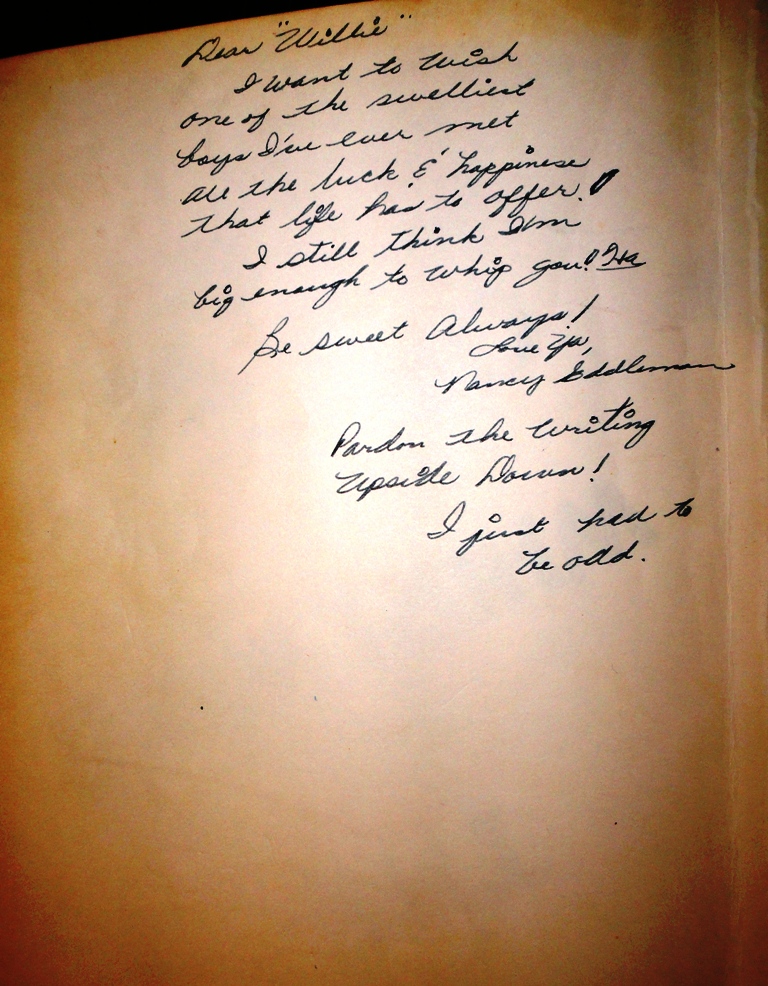 Dear "Willie"
I want to wish
one of the swelliest
boys I've ever met
all the luck & happiness
that life has to offer.!
I still think I'm
big enough to whip you! Ha
Be sweet Always!
Love Ya,
Nancy Eddleman
Pardon the writing
Upside Down!
I just had to
be odd.